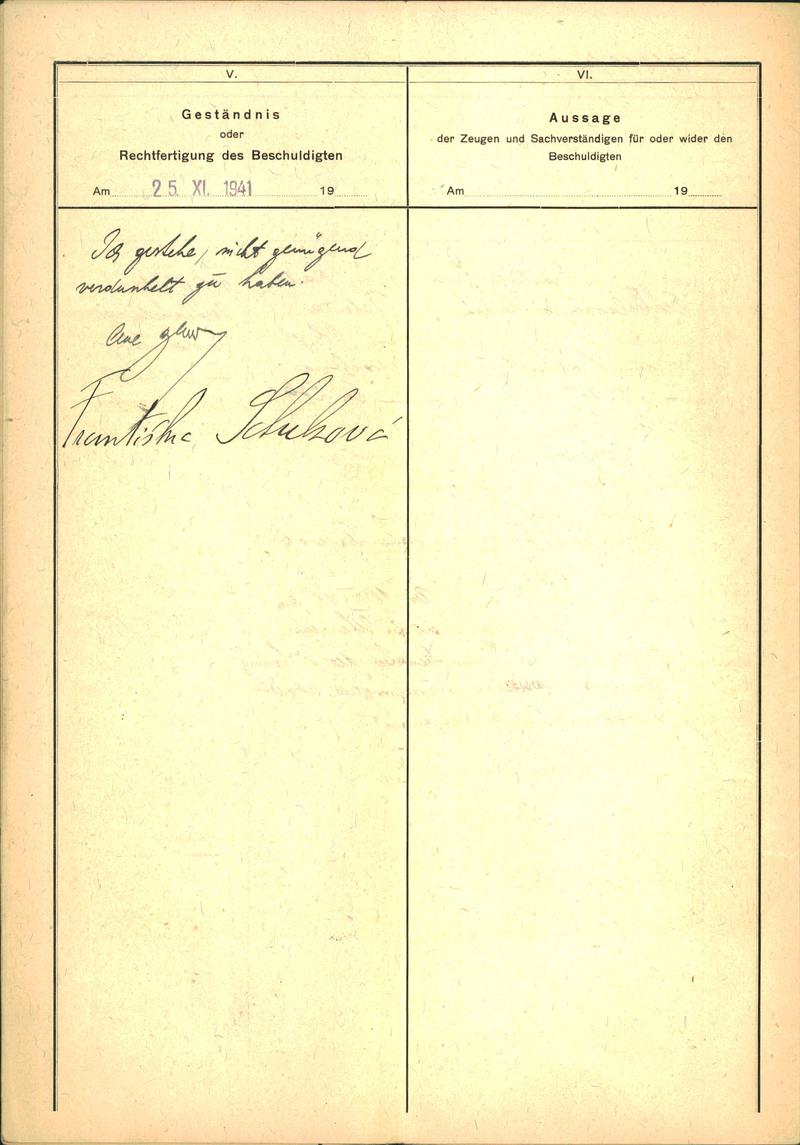 V.
Geständnis
oder
Rechtfertigung des Beschuldigten
Am 25. XI. 1941 19
Ich gestehe, nicht genügend
verdunkelt zu haben.
Františka
VI.
Aussage
der Zeugen und Sachverständigen für oder wider den
Beschuldigten
Am 19